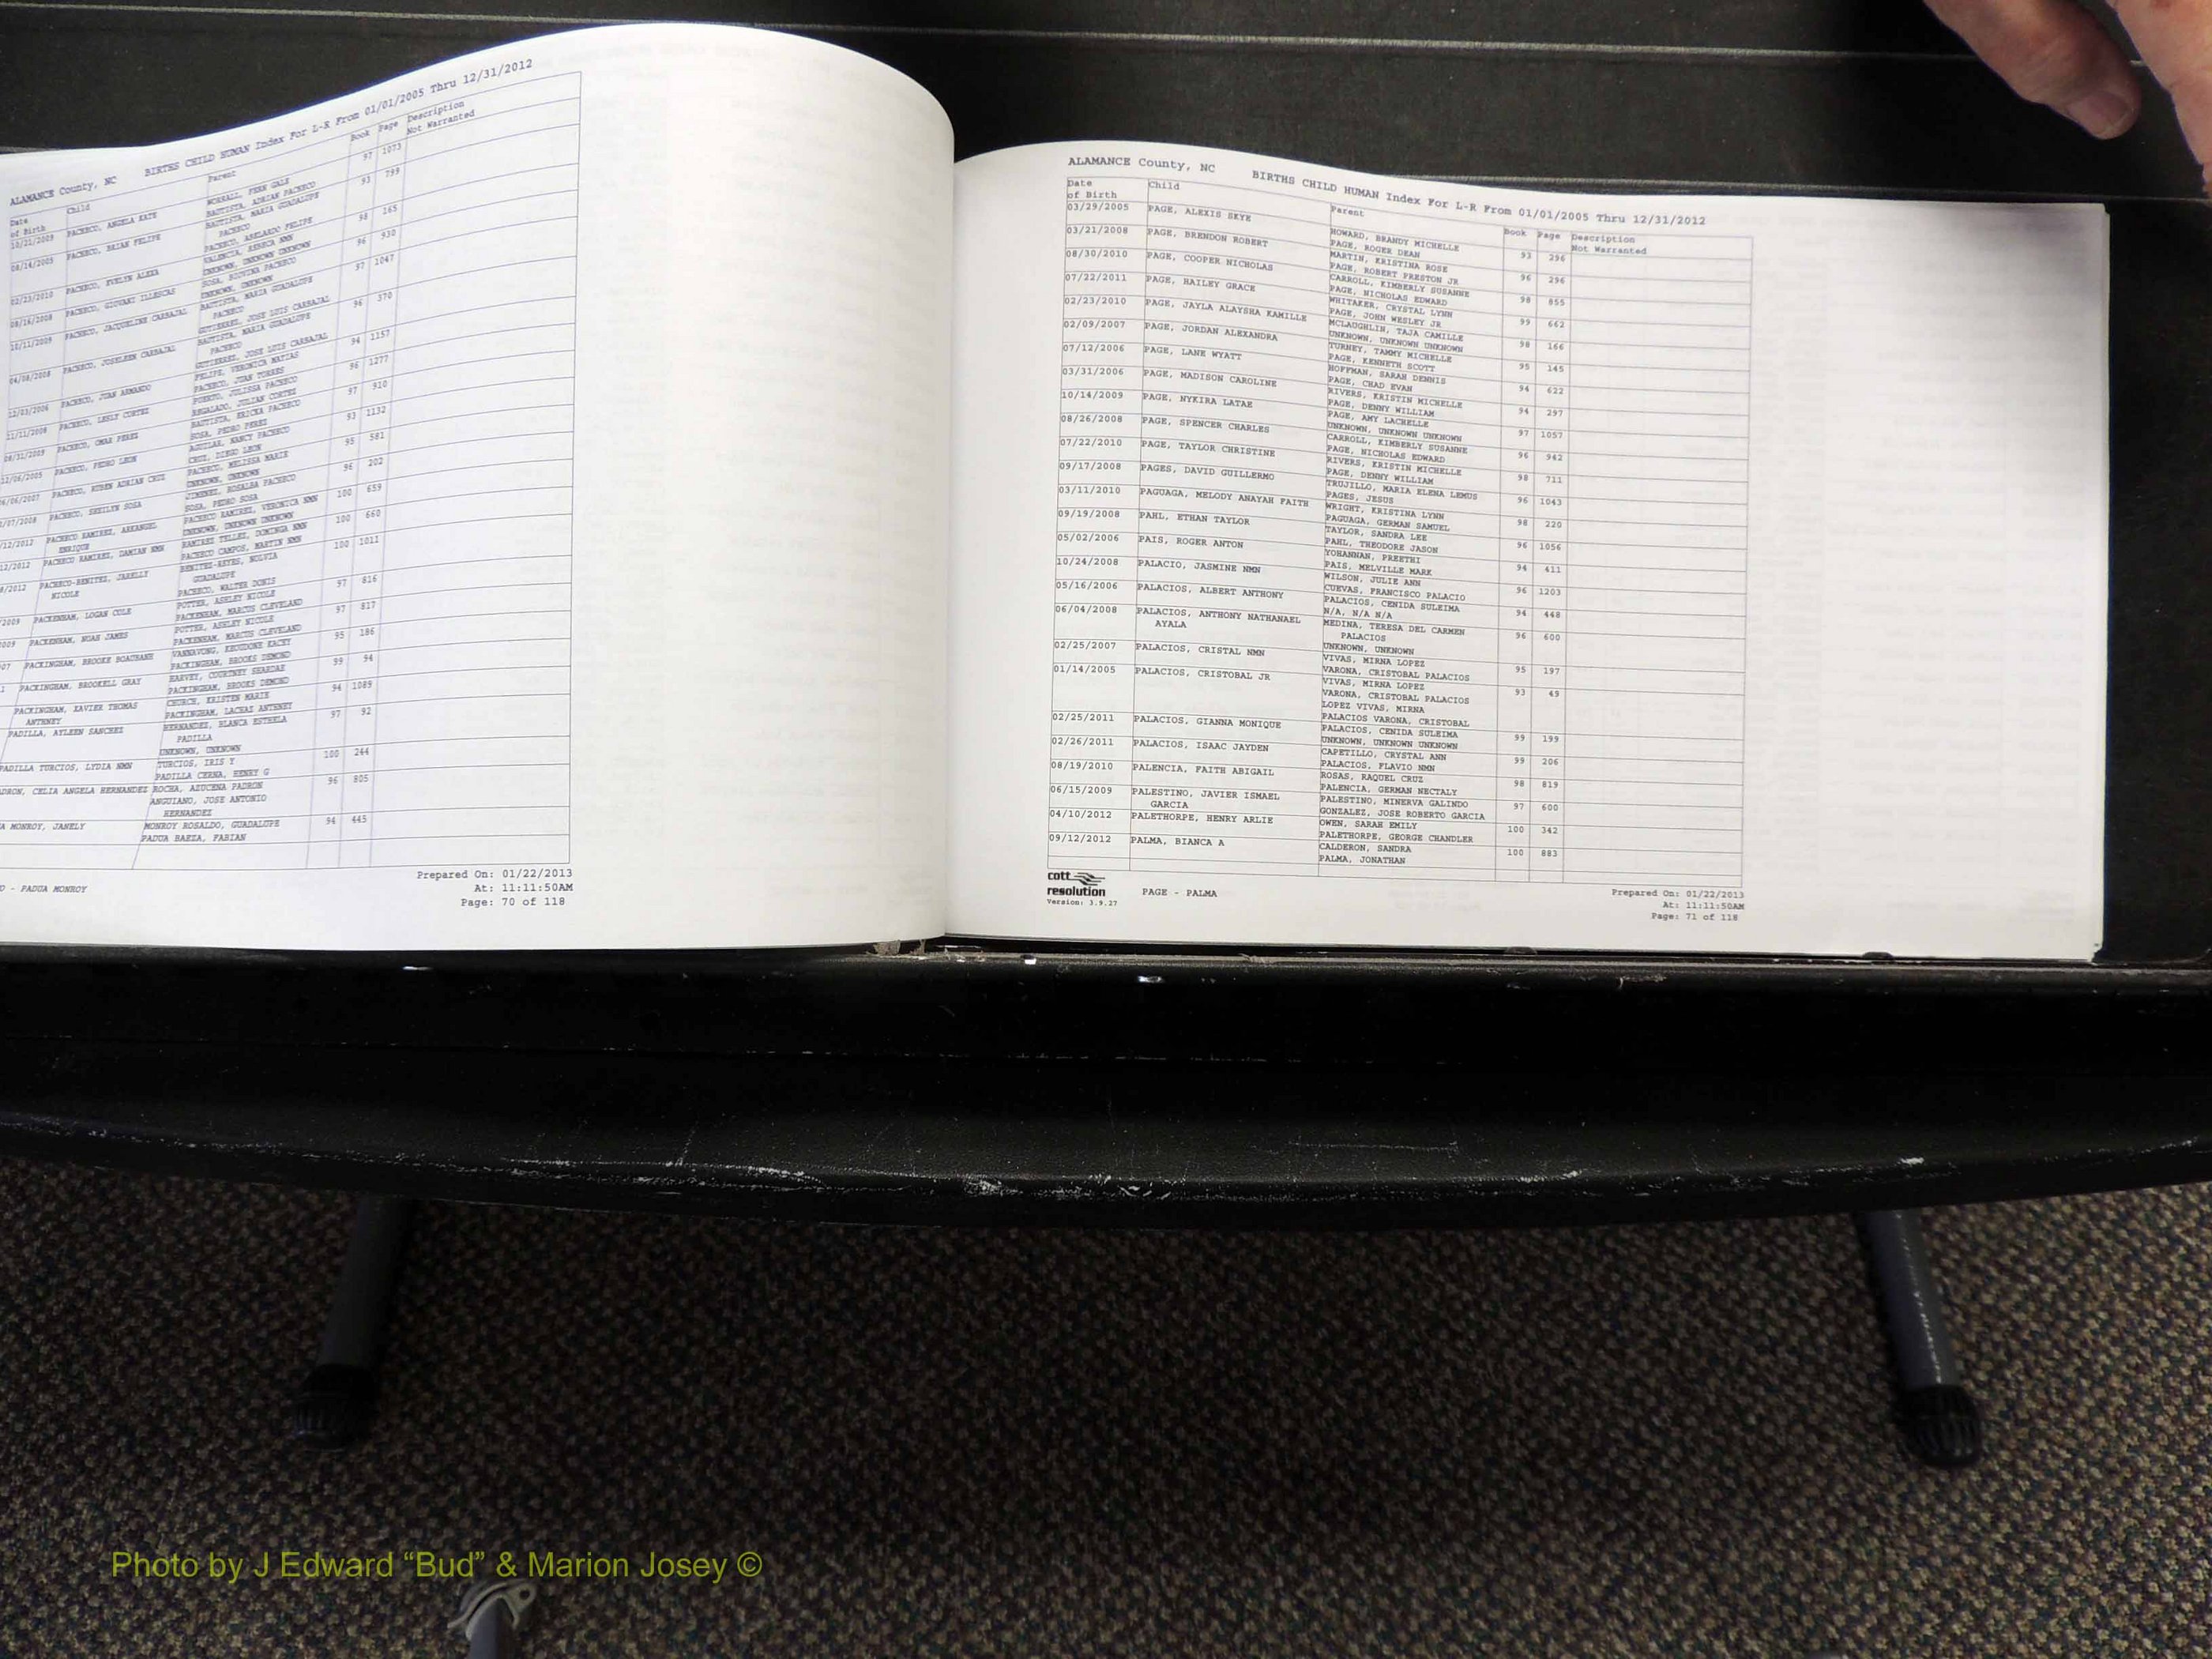 ALAMANCE County, NC BIRTHS CHILD HUMAN Index For L-R From 01/01/2005 Thru 12/31/2012
Date of Birth Child Parent Book Page Description Not Warranted
10/21/2009 PACHECO, ANGELA KATE WORRALL, FERN GALE 97 1073
BAUTISTA, ADRIAN PACHECO
08/14/2005 PACHECO, BRIAN FELIPE BAUTISTA, MARIA GUADALUPE PACHECO 93 799
PACHECO, ABELARDO FELIPE
02/23/2010 PACHECO, EVELYN ALEXA VALENCIA, REBECA NMN 98 165
UNKNOWN, UNKNOWN UNKNOWN
08/16/2008 PACHECO, GIOVANI ILLESCAS SOSA, PACHECO 96 930
UNKNOWN, UNKNOWN
10/11/2009 PACHECO, JACQUELINE CARBAJAL BAUTISTA, MARIA GUADALUPE PACHECO 97 1047
GUTIERREZ, JOSE LUIS CARBAJAL
04/08/2008 PACHECO, JOSELEEN CARBAJAL BAUTISTA, MARIA GUADALUPE PACHECO 96 370
GUTIERREZ, JOSE LUIS CARBAJAL
12/03/2006 PACHECO, JUAN ARMANDO FELIPE, VERONICA MATIAS 94 1157
PACHECO, JUAN TORRES
11/11/2008 PACHECO, LESLY CORTEZ PUERTO, JULISSA PACHECO 96 1277
REGALADO, JULIAN CORTEZ
08/31/2009 PACHECO, OMAR PEREZ BAUTISTA, ERICKA PACHECO 97 910
SOSA, PEDRO PEREZ
12/06/2005 PACHECO, PEDRO LEON AGUILAR, NANCY PACHECO 93 1132
CRUZ, DIEGO LEON
6/06/2007 PACHECO, RUBEN ADRIAN CRUZ PACHECO, MELISSA MARIE 95 581
UNKNOWN, UNKNOWN
/07/2008 PACHECO, SHEILYN SOSA JIMENEZ, ROSALBA PACHECO 96 202
SOSA, PEDRO SOSA
/12/2012 PACHECO RAMIREZ, ARKANGEL ENRIQUE PACHECO RAMIREZ, VERONICA NMN 100 659
UNKNOWN, UNKNOWN UNKNOWN
12/2012 PACHECO RAMIREZ, DAMIAN NMN RAMIREZ TELLEZ, DOMINGA NMN 100 660
PACHECO CAMPOS, MARTIN NMN
8/2012 PACHECO-BENITEZ, JARELLY NICOLE BENITEZ-REYES, NOLVIA GUADALUPE 100 1011
PACHECO, WALTER DONIS
2009 PACKENHAM, LOGAN COLE POTTER, ASHLEY NICOLE 97 816
PACKENHAM, MARCUS CLEVELAND
009 PACKENHAM, NOAH JAMES POTTER, ASHLEY NICOLE 97 817
PACKENHAM, MARCUS CLEVELAND
07 PACKINGHAM, BROOKE BOAUBANH VANNAVONG, KEOUDONE KACEY 95 186
PACKINGHAM, BROOKS DEMOND
1 PACKINGHAM, BROOKELL GRAY HARVEY, COURTNEY SHARDAE 99 94
PACKINGHAM, BROOKS DEMOND
PACKINGHAM, XAVIER THOMAS ANTHNEY CHURCH, KRISTEN MARIE 94 1089
PACKINGHAM, LACHAZ ANTHNEY
PADILLA, AYLEEN SANCHEZ HERNANDEZ, BLANCA ESTHELA PADILLA 97 92
UNKNOWN, UNKNOWN
PADILLA TURCIOS, LYDIA NMN TURCIOS, IRIS Y 100 244
PADILLA CERNA, HENRY G
DRON, CELIA ANGELA HERNANDEZ ROCHA, AZUCENA PADRON 96 805
ANGUIANO, JOSE ANTONIO HERNANDEZ
A MONROY, JANELY MONROY ROSALDO, GUADALUPE 94 445
PADUA BAEZA, FABIAN
O - PADUA MONROY
Prepared On: 01/22/2013
At: 11:11:50AM
Page: 70 of 118
ALAMANCE County, NC BIRTHS CHILD HUMAN Index For L-R From 01/01/2005 Thru 12/31/2012
Date of Birth Child Parent Book Page Description Not Warranted
03/29/2005 PAGE, ALEXIS SKYE HOWARD, BRANDY MICHELLE 93 296
PAGE, ROGER DEAN
03/21/2008 PAGE, BRENDON ROBERT MARTIN, KRISTINA ROSE 96 296
PAGE, ROBERT PRESTON JR
08/30/2010 PAGE, COOPER NICHOLAS CARROLL, KIMBERLY SUSANNE 98 855
PAGE, NICHOLAS EDWARD
07/22/2011 PAGE, HAILEY GRACE WHITAKER, CRYSTAL LYNN 99 662
PAGE, JOHN WESLEY JR
02/23/2010 PAGE, JAYLA ALAYSHA KAMILLE MCLAUGHLIN, TAJA CAMILLE 98 166
UNKNOWN, UNKNOWN UNKNOWN
02/09/2007 PAGE, JORDAN ALEXANDRA TURNEY, TAMMY MICHELLE 95 145
PAGE, KENNETH SCOTT
07/12/2006 PAGE, LANE WYATT HOFFMAN, SARAH DENNIS 94 622
PAGE, CHAD EVAN
03/31/2006 PAGE, MADISON CAROLINE RIVERS, KRISTIN MICHELLE 94 297
PAGE, DENNY WILLIAM
10/14/2009 PAGE, NYKIRA LATAE PAGE, AMY LACHELLE 97 1057
UNKNOWN, UNKNOWN UNKNOWN
08/26/2008 PAGE, SPENCER CHARLES CARROLL, KIMBERLY SUSANNE 96 942
PAGE, NICHOLAS EDWARD
07/22/2010 PAGE, TAYLOR CHRISTINE RIVERS, KRISTIN MICHELLE 98 711
PAGE, DENNY WILLIAM
09/17/2008 PAGES, DAVID GUILLERMO TRUJILLO, MARIA ELENA LEMUS 96 1043
PAGES, JESUS
03/11/2010 PAGUAGA, MELODY ANAYAH FAITH WRIGHT, KRISTINA LYNN 98 220
PAGUAGA, GERMAN SAMUEL
09/19/2008 PAHL, ETHAN TAYLOR TAYLOR, SANDRA LEE 96 1056
PAHL, THEODORE JASON
05/02/2006 PAIS, ROGER ANTON YOHANNAN, PREETHI 94 411
PAIS, MELVILLE MARK
10/24/2008 PALACIO, JASMINE NMN WILSON, JULIE ANN 96 1203
CUEVAS, FRANCISCO PALACIO
05/16/2006 PALACIOS, ALBERT ANTHONY PALACIOS, CENIDA SULEIMA 94 448
N/A, N/A N/A
06/04/2008 PALACIOS, ANTHONY NATHANAEL AYALA MEDINA, TERESA DEL CARMEN PALACIOS 96 600
UNKNOWN, UNKNOWN
02/25/2007 PALACIOS, CRISTAL NMN VIVAS, MIRNA LOPEZ 95 197
VARONA, CRISTOBAL PALACIOS
01/14/2005 PALACIOS, CRISTOBAL JR VIVAS, MIRNA LOPEZ 93 49
VARONA, CRISTOBAL PALACIOS
LOPEZ VIVAS, MIRNA
PALACIOS VARONA, CRISTOBAL
02/25/2011 PALACIOS, GIANNA MONIQUE PALACIOS, CENIDA SULEIMA 99 199
UNKNOWN, UNKNOWN UNKNOWN
02/26/2011 PALACIOS, ISAAC JAYDEN CAPETILLO, CRYSTAL ANN 99 206
PALACIOS, FLAVIO NMN
08/19/2010 PALENCIA, FAITH ABIGAIL ROSAS, RAQUEL CRUZ 98 819
PALENCIA, GERMAN NECTALY
06/15/2009 PALESTINO, JAVIER ISMAEL GARCIA PALESTINO, MINERVA GALINDO 97 600
GONZALEZ, JOSE ROBERTO GARCIA
04/10/2012 PALETHORPE, HENRY ARLIE OWEN, SARAH EMILY 100 342
PALETHORPE, GEORGE CHANDLER
09/12/2012 PALMA, BIANCA A CALDERON, SANDRA 100 883
PALMA, JONATHAN
cott
resolution
Version: 3.9.27
PAGE - PALMA
Prepared On: 01/22/2013
At: 11:11:50AM
Page: 71 of 118
Photo by J Edward “Bud” & Marion Josey ©